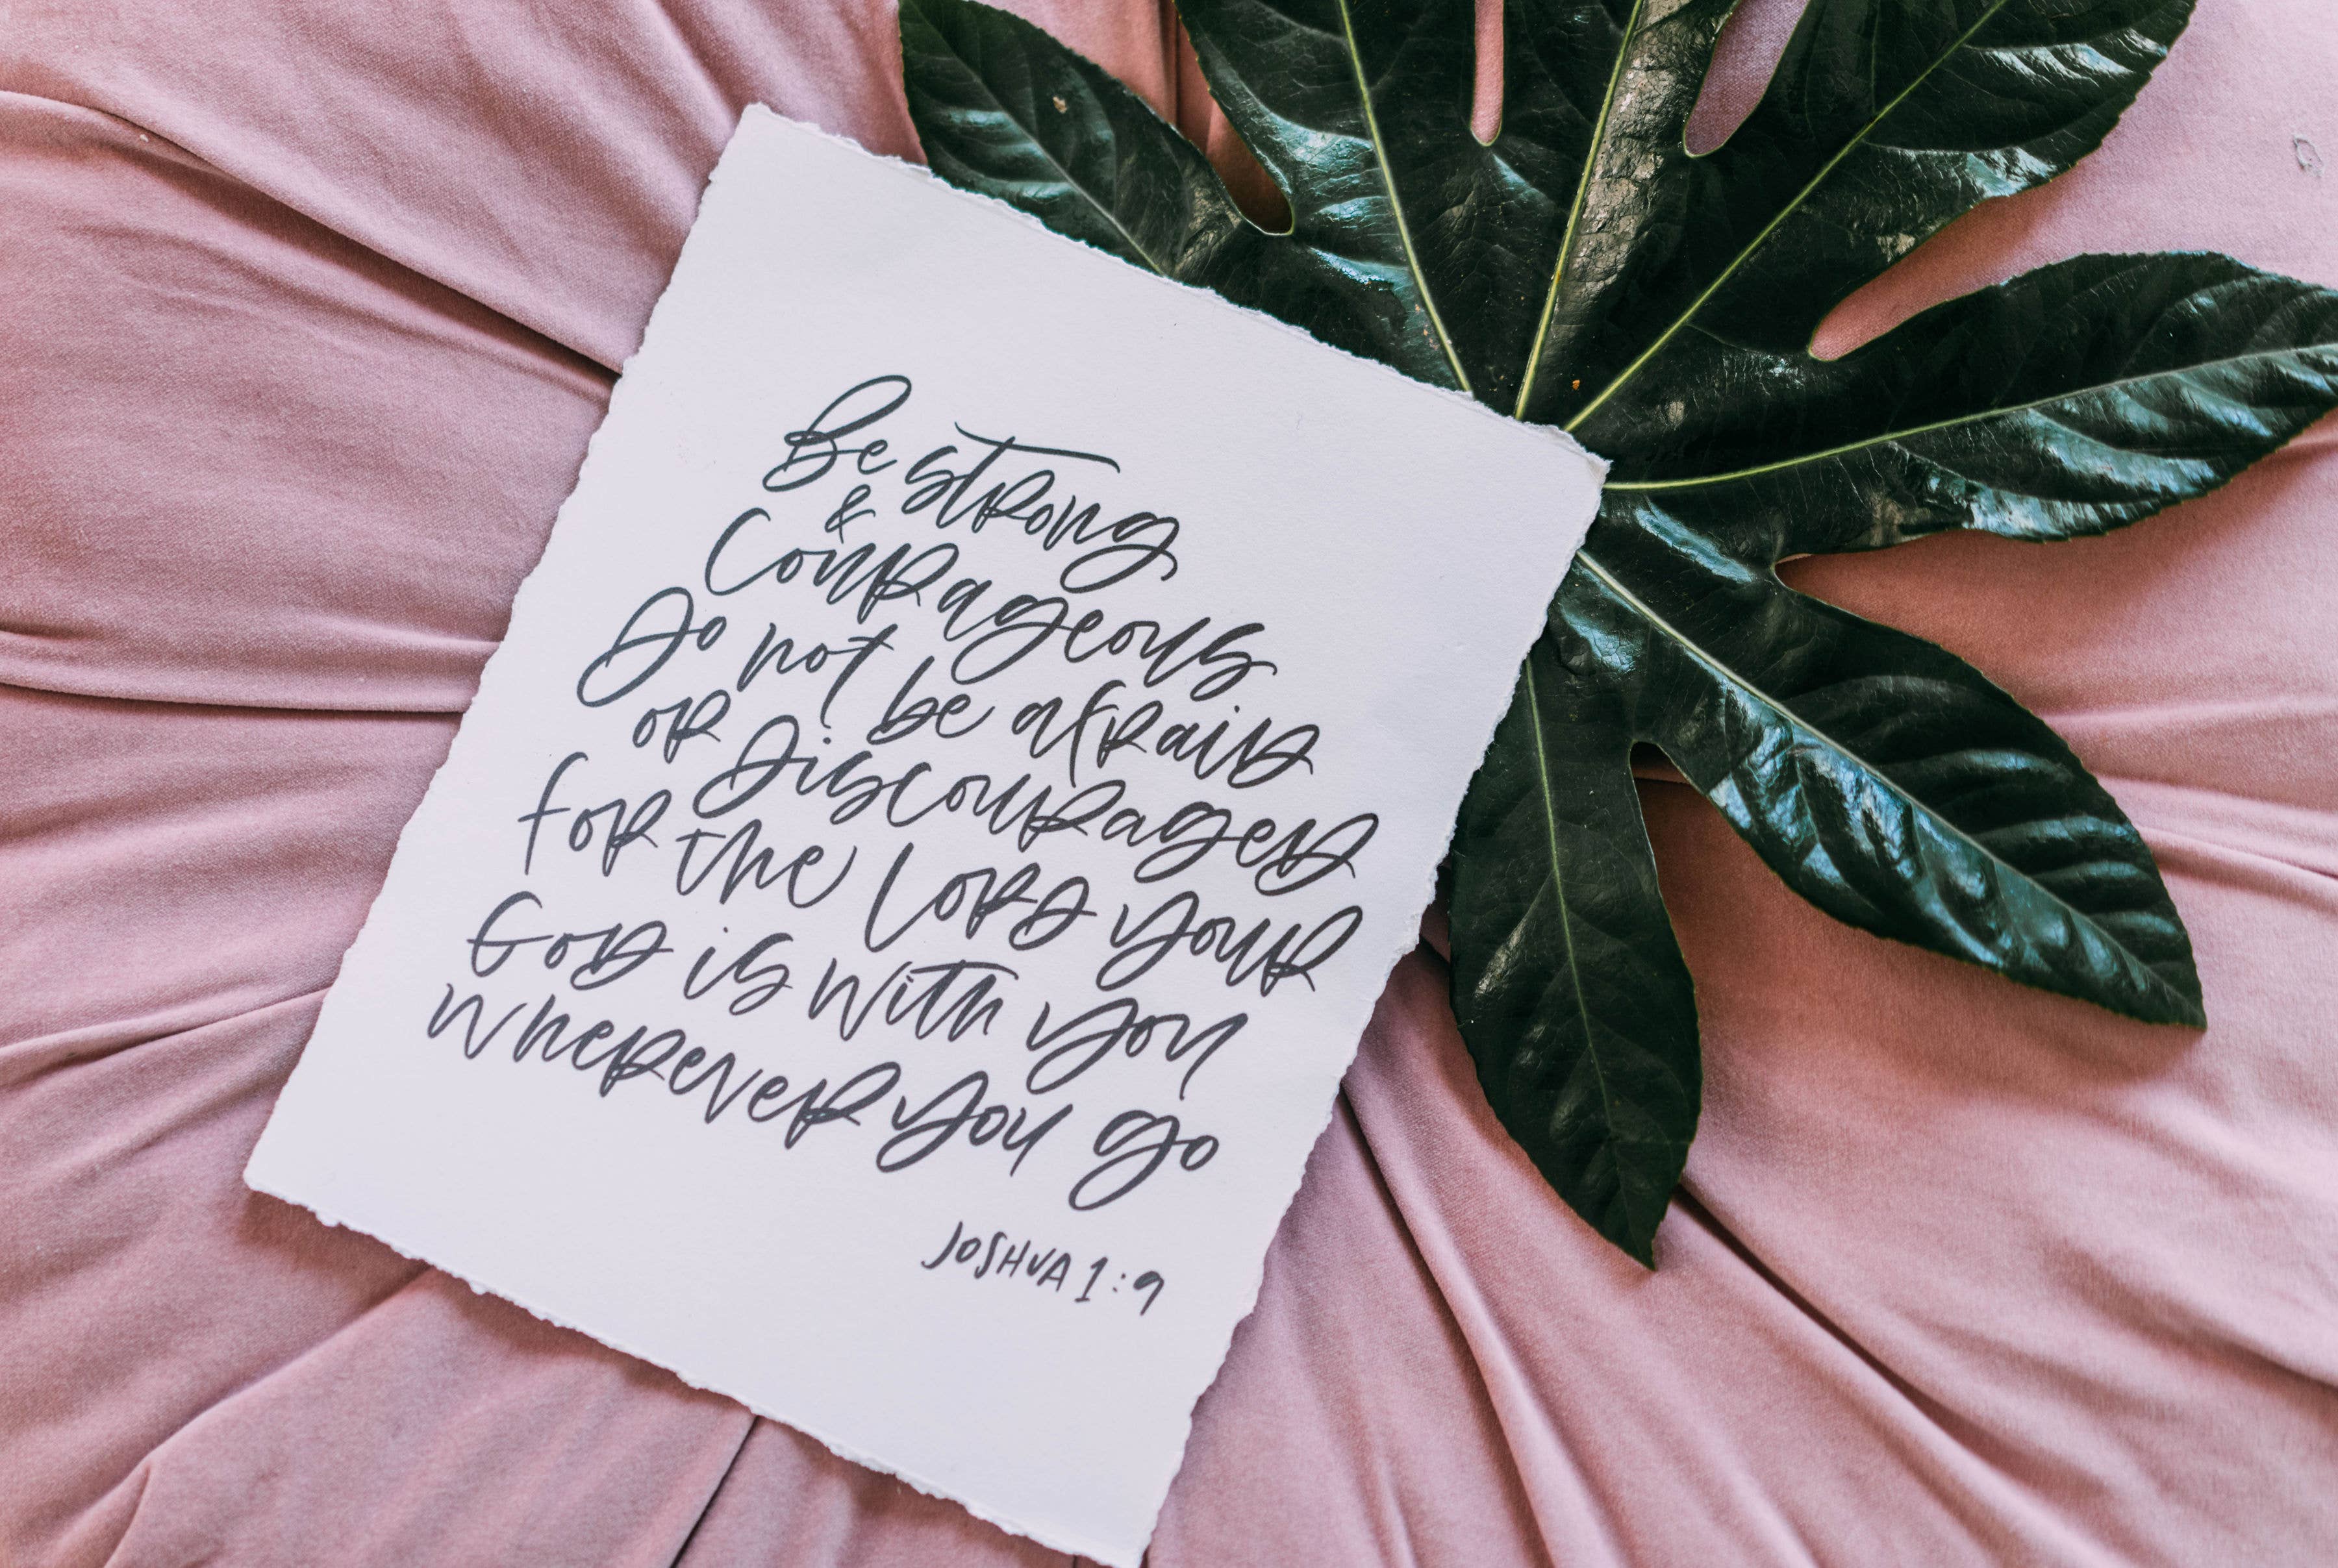 Be strong
&
Courageous
Do not be afraid
or Discouraged
for the Lord your
God is with you
wherever you go
JOSHUA 1:9